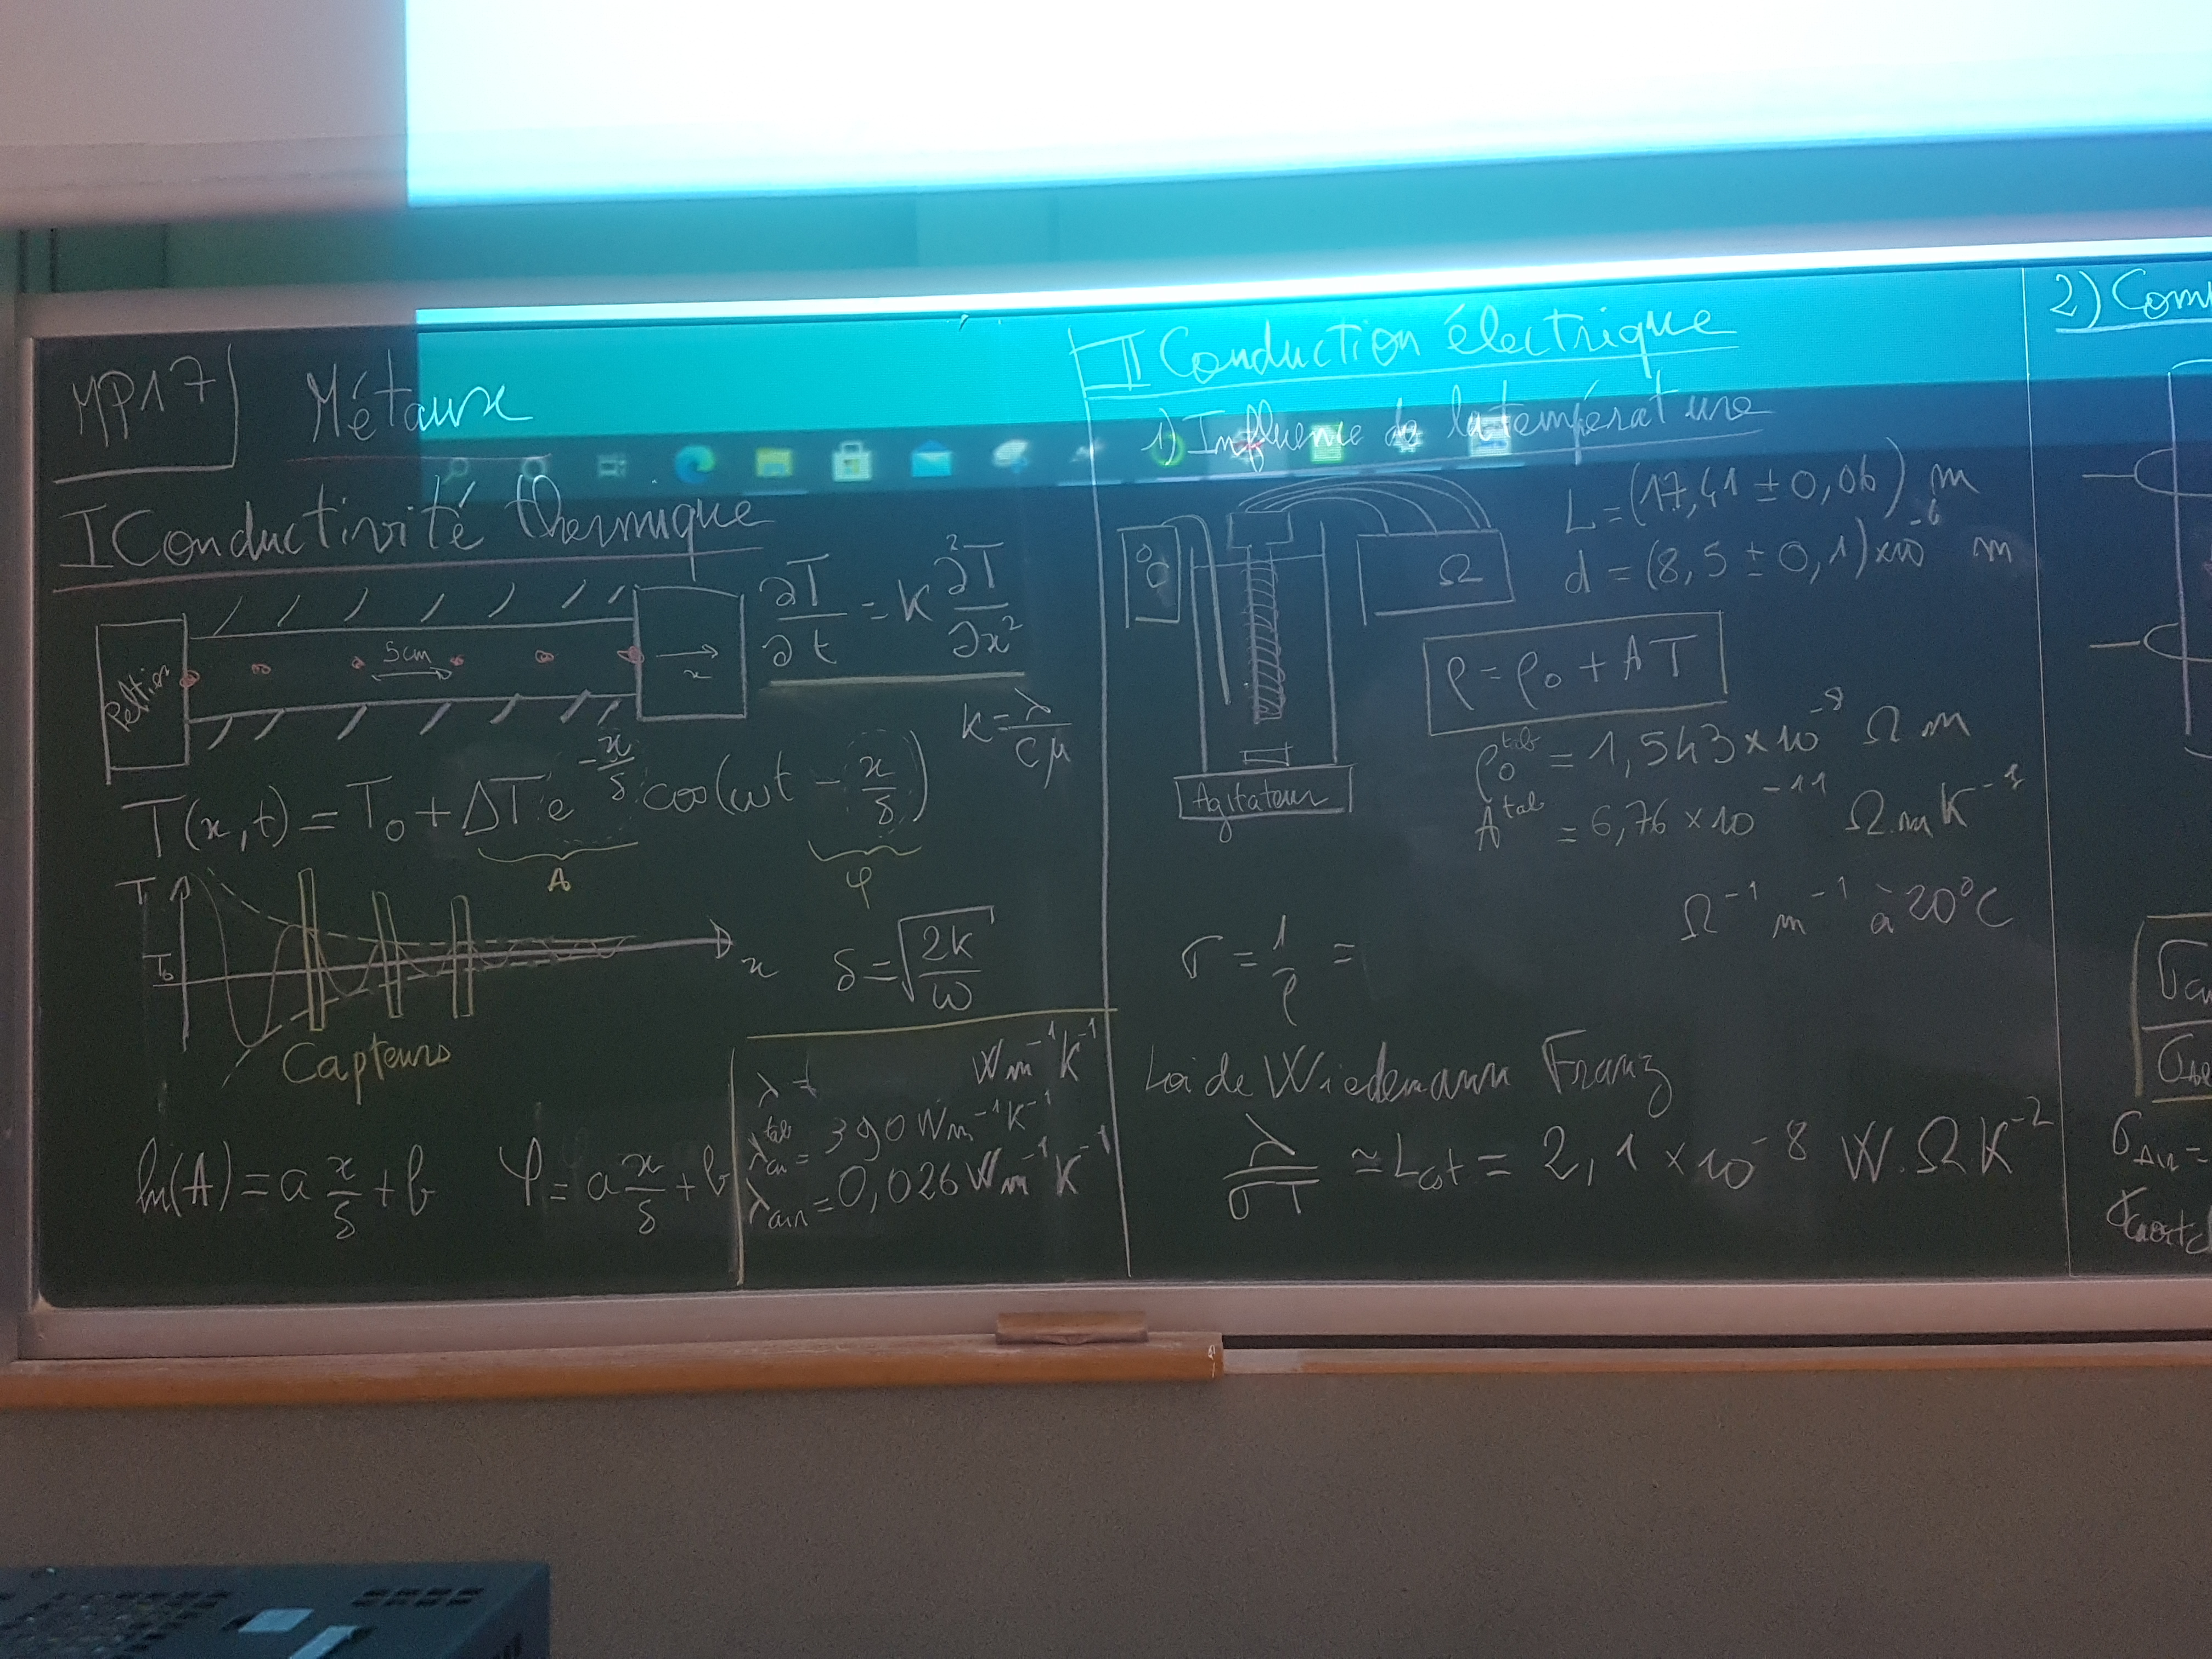 MP17
Métaux
I Conductivité thermique
Peltier
5cm
x
∂T/∂t = K ∂²T/∂x²
K = λ/cμ
T(x,t) = T₀ + ΔT e^(-x/δ) cos(ωt - x/δ)
A
φ
T
T₀
x
δ = √(2K/ω)
Capteurs
ln(A) = a x/δ + b
φ = a x/δ + b
λ = W m⁻¹ K⁻¹
λ^tab_cu = 390 W m⁻¹ K⁻¹
λ_air = 0,026 W m⁻¹ K⁻¹
II Conduction électrique
1) Influence de la température
°C
Ω
Agitateur
L = (17,41 ± 0,06) m
d = (8,5 ± 0,1)×10⁻⁶ m
ρ = ρ₀ + AT
ρ₀^tab = 1,543 × 10⁻⁸ Ω m
A^tab = 6,76 × 10⁻¹¹ Ω.m K⁻¹
σ = 1/ρ = Ω⁻¹ m⁻¹ à 20°C
Loi de Wiedemann Franz
λ/σT ≃ L_cst = 2,1 × 10⁻⁸ W.Ω K⁻²
2) Com